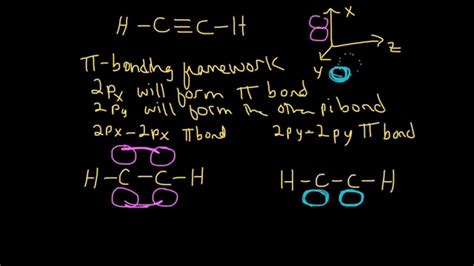 H-C≡C-H
X
Z
Y
π-bonding framework
2px will form π bond
2py will form the other pi bond
2px-2px π bond
2py-2py π bond
H-C-C-H
H-C-C-H